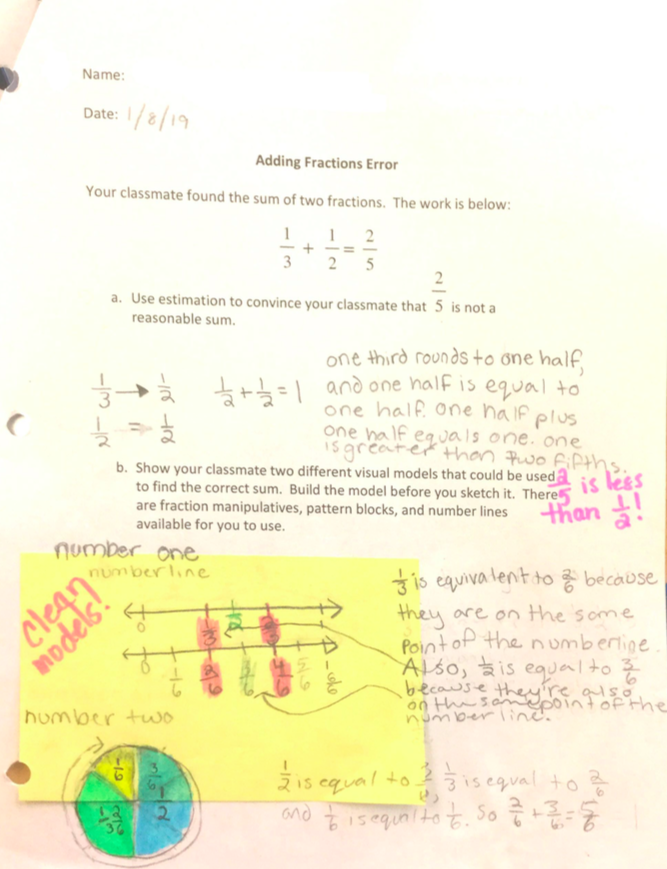 Name:
Date: 1/8/19
Adding Fractions Error
Your classmate found the sum of two fractions. The work is below:
1/3 + 1/2 = 2/5
a. Use estimation to convince your classmate that 2/5 is not a
reasonable sum.
1/3 → 1/2
1/2 = 1/2
1/2 + 1/2 = 1
one third rounds to one half,
and one half is equal to
one half. one half plus
one half equals one. one
is greater than two fifths.
b. Show your classmate two different visual models that could be used
to find the correct sum. Build the model before you sketch it. There
are fraction manipulatives, pattern blocks, and number lines
available for you to use.
2/5 is less
than 1/2!
number one
numberline
clean
models!
0 1/3 1/2 2/3
0 1/6 2/6 3/6 4/6 5/6 6/6
1/3 is equivalent to 2/6 because
they are on the same
point of the numberline.
Also, 1/2 is equal to 3/6
because they're also
on the same point of the
number line.
number two
1/6 3/6
1/3 2/6 1/2
1/2 is equal to 1/3 is equal to 2/6
and 1/6 is equal to 1/6. So 2/6 + 3/6 = 5/6